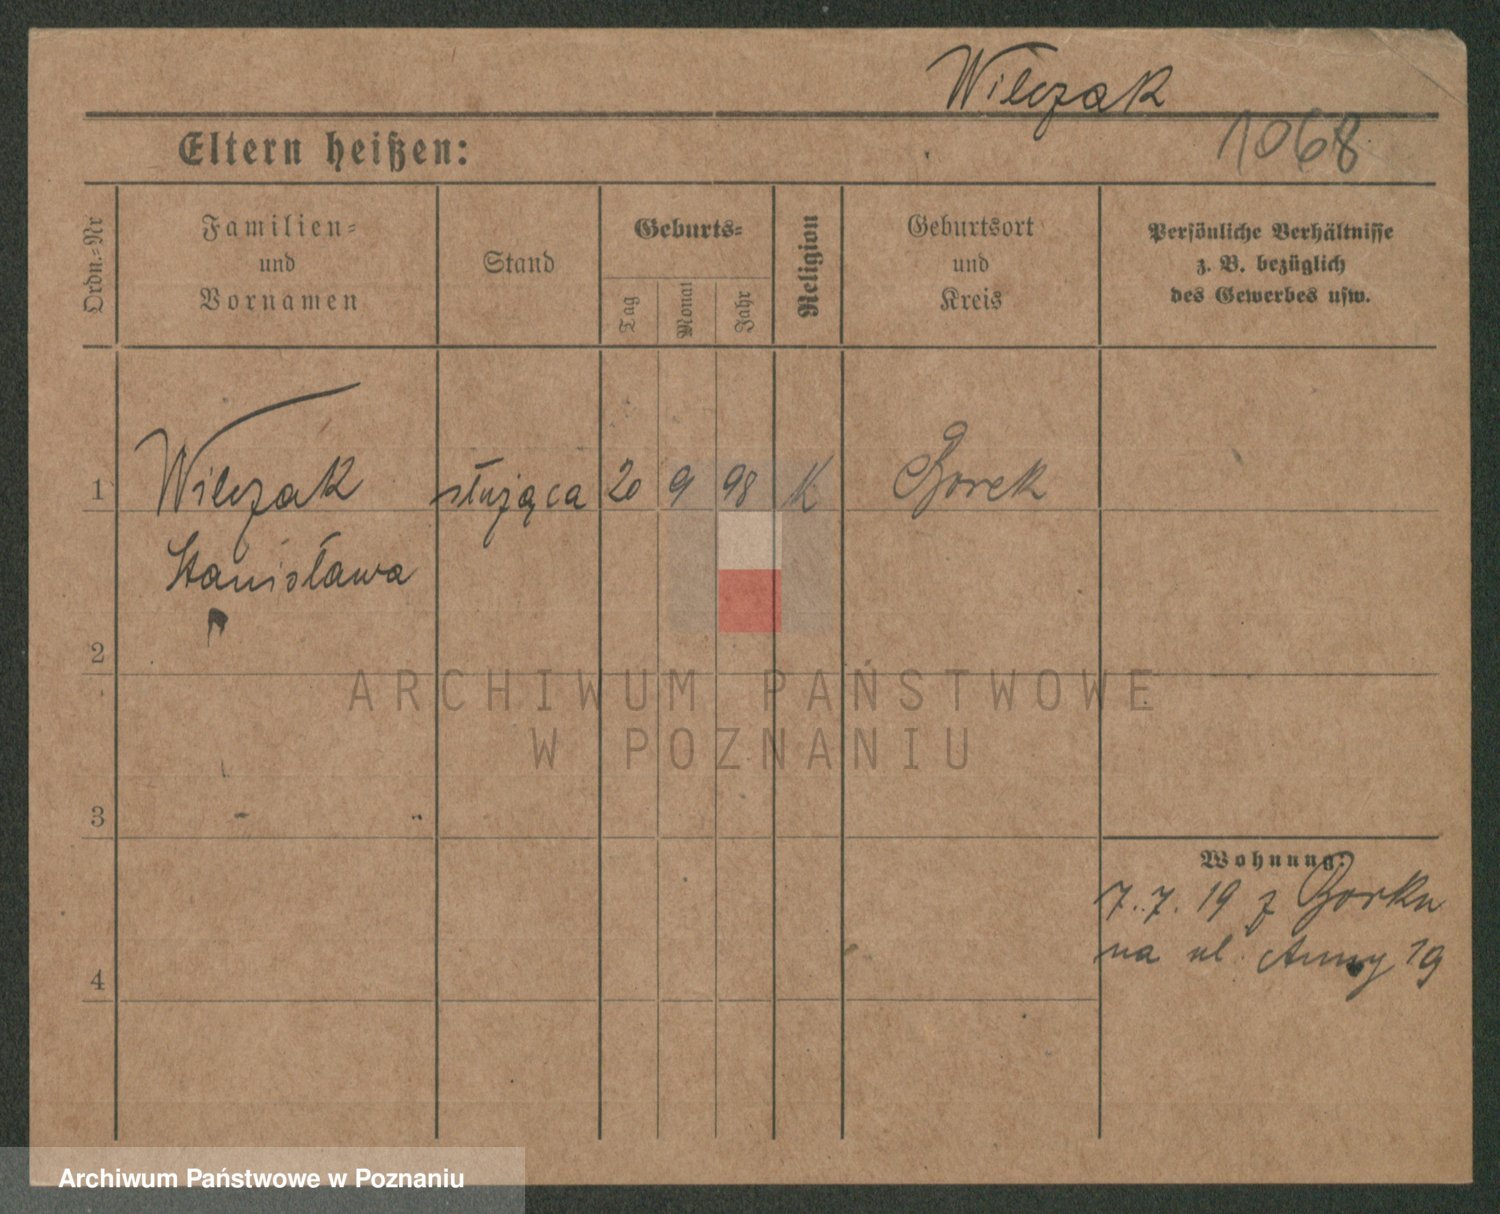 Wilczak
1068
Eltern heißen:
Ordn.-Nr
Familien-
und
Vornamen
Stand
Geburts-
Tag
Monat
Jahr
Religion
Geburtsort
und
Kreis
Persönliche Verhältnisse
z. B. bezüglich
des Gewerbes usw.
1
Wilczak służąca 20 9 98 K Borek
Stanisława
2
ARCHIWUM PAŃSTWOWE
W POZNANIU
3
Wohnung:
7.7.19 z Borku
na ul. Anny 19
4
Archiwum Państwowe w Poznaniu